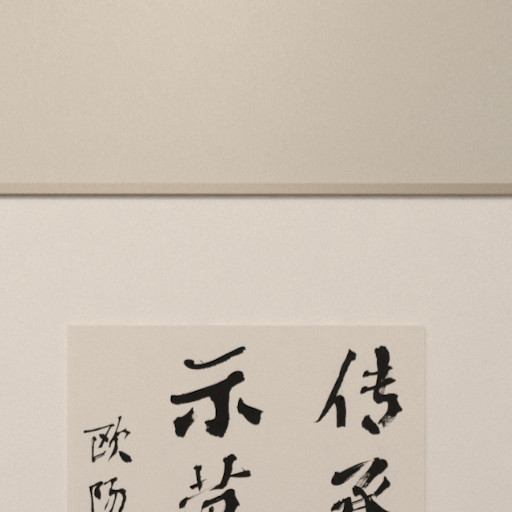 传承
示范
欧阳